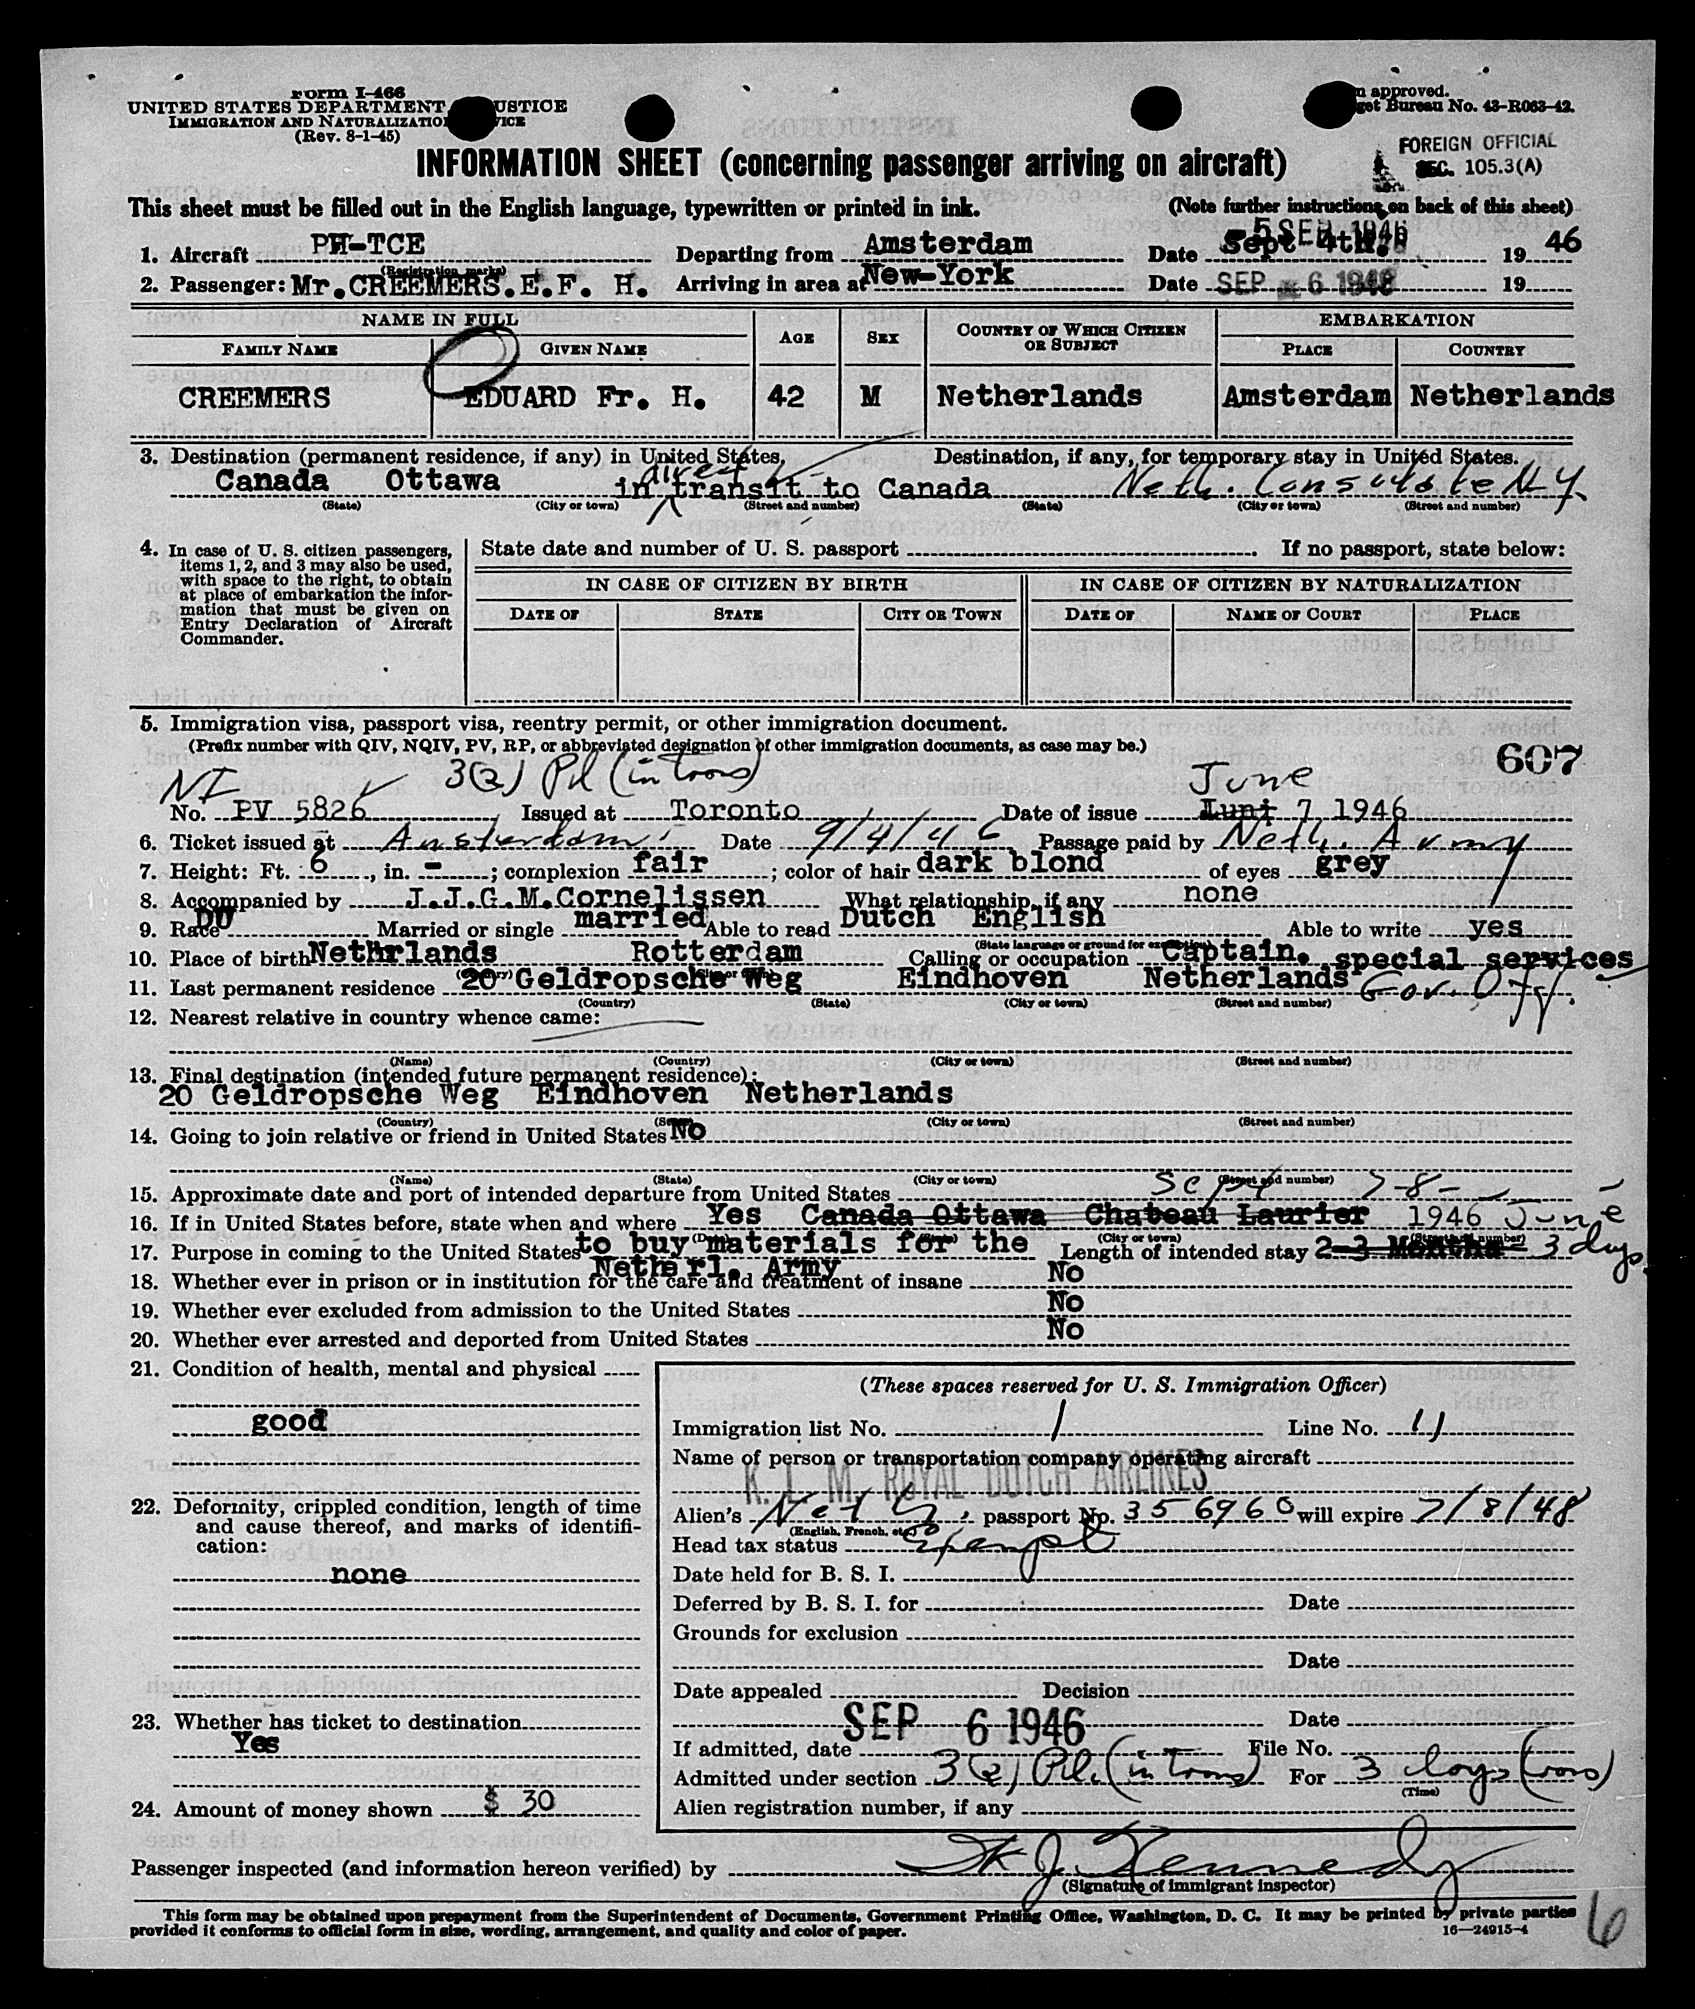 Form I-466
UNITED STATES DEPARTMENT USTICE
IMMIGRATION AND NATURALIZATIO VICE
(Rev. 8-1-45)
n approved.
get Bureau No. 43-R063-42.
FOREIGN OFFICIAL
SEC. 105.3(A)
INFORMATION SHEET (concerning passenger arriving on aircraft)
This sheet must be filled out in the English language, typewritten or printed in ink. (Note further instructions on back of this sheet)
5 SEP 1946
1. Aircraft PH-TCE Departing from Amsterdam Date Sept 4th. 19 46
(Registration marks)
2. Passenger: Mr.CREEMERS.E.F. H. Arriving in area at New-York Date SEP 6 1946 19
NAME IN FULL AGE SEX COUNTRY OF WHICH CITIZEN OR SUBJECT EMBARKATION
FAMILY NAME GIVEN NAME PLACE COUNTRY
CREEMERS EDUARD Fr. H. 42 M Netherlands Amsterdam Netherlands
3. Destination (permanent residence, if any) in United States. Destination, if any, for temporary stay in United States.
Canada Ottawa in direct transit to Canada Neth. Consulate N.Y.
(State) (City or town) (Street and number) (State) (City or town) (Street and number)
4. In case of U. S. citizen passengers,
items 1, 2, and 3 may also be used,
with space to the right, to obtain
at place of embarkation the infor-
mation that must be given on
Entry Declaration of Aircraft
Commander.
State date and number of U. S. passport . If no passport, state below:
IN CASE OF CITIZEN BY BIRTH IN CASE OF CITIZEN BY NATURALIZATION
DATE OF STATE CITY OR TOWN DATE OF NAME OF COURT PLACE
5. Immigration visa, passport visa, reentry permit, or other immigration document.
(Prefix number with QIV, NQIV, PV, RP, or abbreviated designation of other immigration documents, as case may be.)
607
NI 3(2) Pil (in Trans) June
No. PV 5826 Issued at Toronto Date of issue Juni 7 1946
6. Ticket issued at Amsterdam Date 9/4/46 Passage paid by Neth. Army
7. Height: Ft. 6, in. -; complexion fair; color of hair dark blond of eyes grey
8. Accompanied by J.J.G.M.Cornelissen What relationship, if any none
9. Race DU Married or single married Able to read Dutch English Able to write yes
(State language or ground for exemption)
10. Place of birth Nethrlands Rotterdam Calling or occupation Captain. special services
(Country) (City or town)
11. Last permanent residence 20 Geldropsche Weg Eindhoven Netherlands Gov. Off.
(Country) (State) (City or town) (Street and number)
12. Nearest relative in country whence came:
(Name) (Country) (City or town) (Street and number)
13. Final destination (intended future permanent residence):
20 Geldropsche Weg Eindhoven Netherlands
(Country) (State) (City or town) (Street and number)
14. Going to join relative or friend in United States No
(Name) (State) (City or town) (Street and number)
15. Approximate date and port of intended departure from United States Sept 7-8-
16. If in United States before, state when and where Yes Canada Ottawa Chateau Laurier 1946 June
(Date) (State) (City or town) (Street and number)
17. Purpose in coming to the United States to buy materials for the Length of intended stay 2-3 Months 3 days
Netherl. Army
18. Whether ever in prison or in institution for the care and treatment of insane No
19. Whether ever excluded from admission to the United States No
20. Whether ever arrested and deported from United States No
21. Condition of health, mental and physical
good
22. Deformity, crippled condition, length of time
and cause thereof, and marks of identifi-
cation:
none
23. Whether has ticket to destination
Yes
24. Amount of money shown $ 30
(These spaces reserved for U. S. Immigration Officer)
Immigration list No. 1 Line No. 11
Name of person or transportation company operating aircraft
K. L. M. ROYAL DUTCH AIRLINES
Alien's Neth. passport No. 356960 will expire 7/8/48
(English, French, etc.)
Head tax status Exempt
Date held for B. S. I.
Deferred by B. S. I. for Date
Grounds for exclusion
Date
Date appealed Decision
SEP 6 1946 Date
If admitted, date File No.
Admitted under section 3(2) Pil. (in Trans) For 3 days (trans)
(Time)
Alien registration number, if any
Passenger inspected (and information hereon verified) by J. Kennedy
(Signature of immigrant inspector)
This form may be obtained upon prepayment from the Superintendent of Documents, Government Printing Office, Washington, D. C. It may be printed by private parties
provided it conforms to official form in size, wording, arrangement, and quality and color of paper. 16—24915-4
6